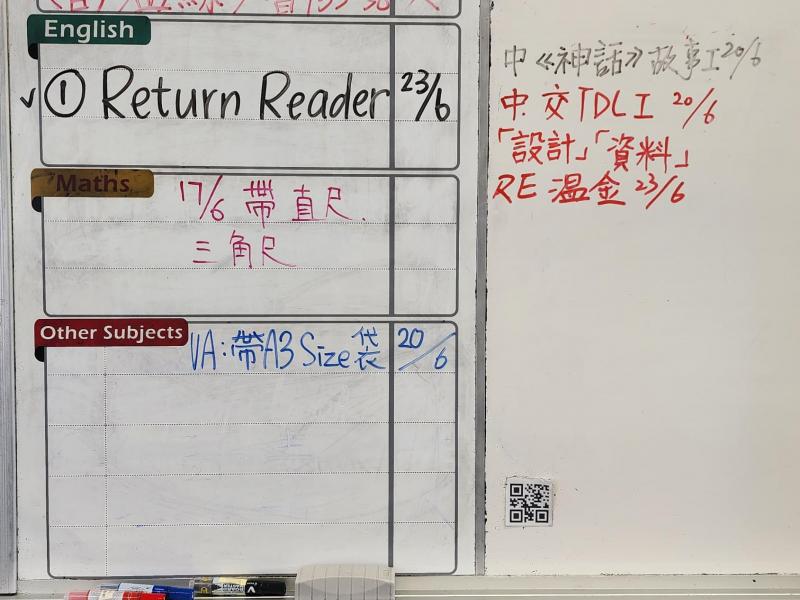 English
① Return Reader 23/6
Maths
17/6 帶 直尺.
三角尺
Other Subjects
VA:帶A3 Size袋 20/6
中《神話》故事工20/6
中 交TDL工 20/6
「設計」「資料」
RE 温金 23/6